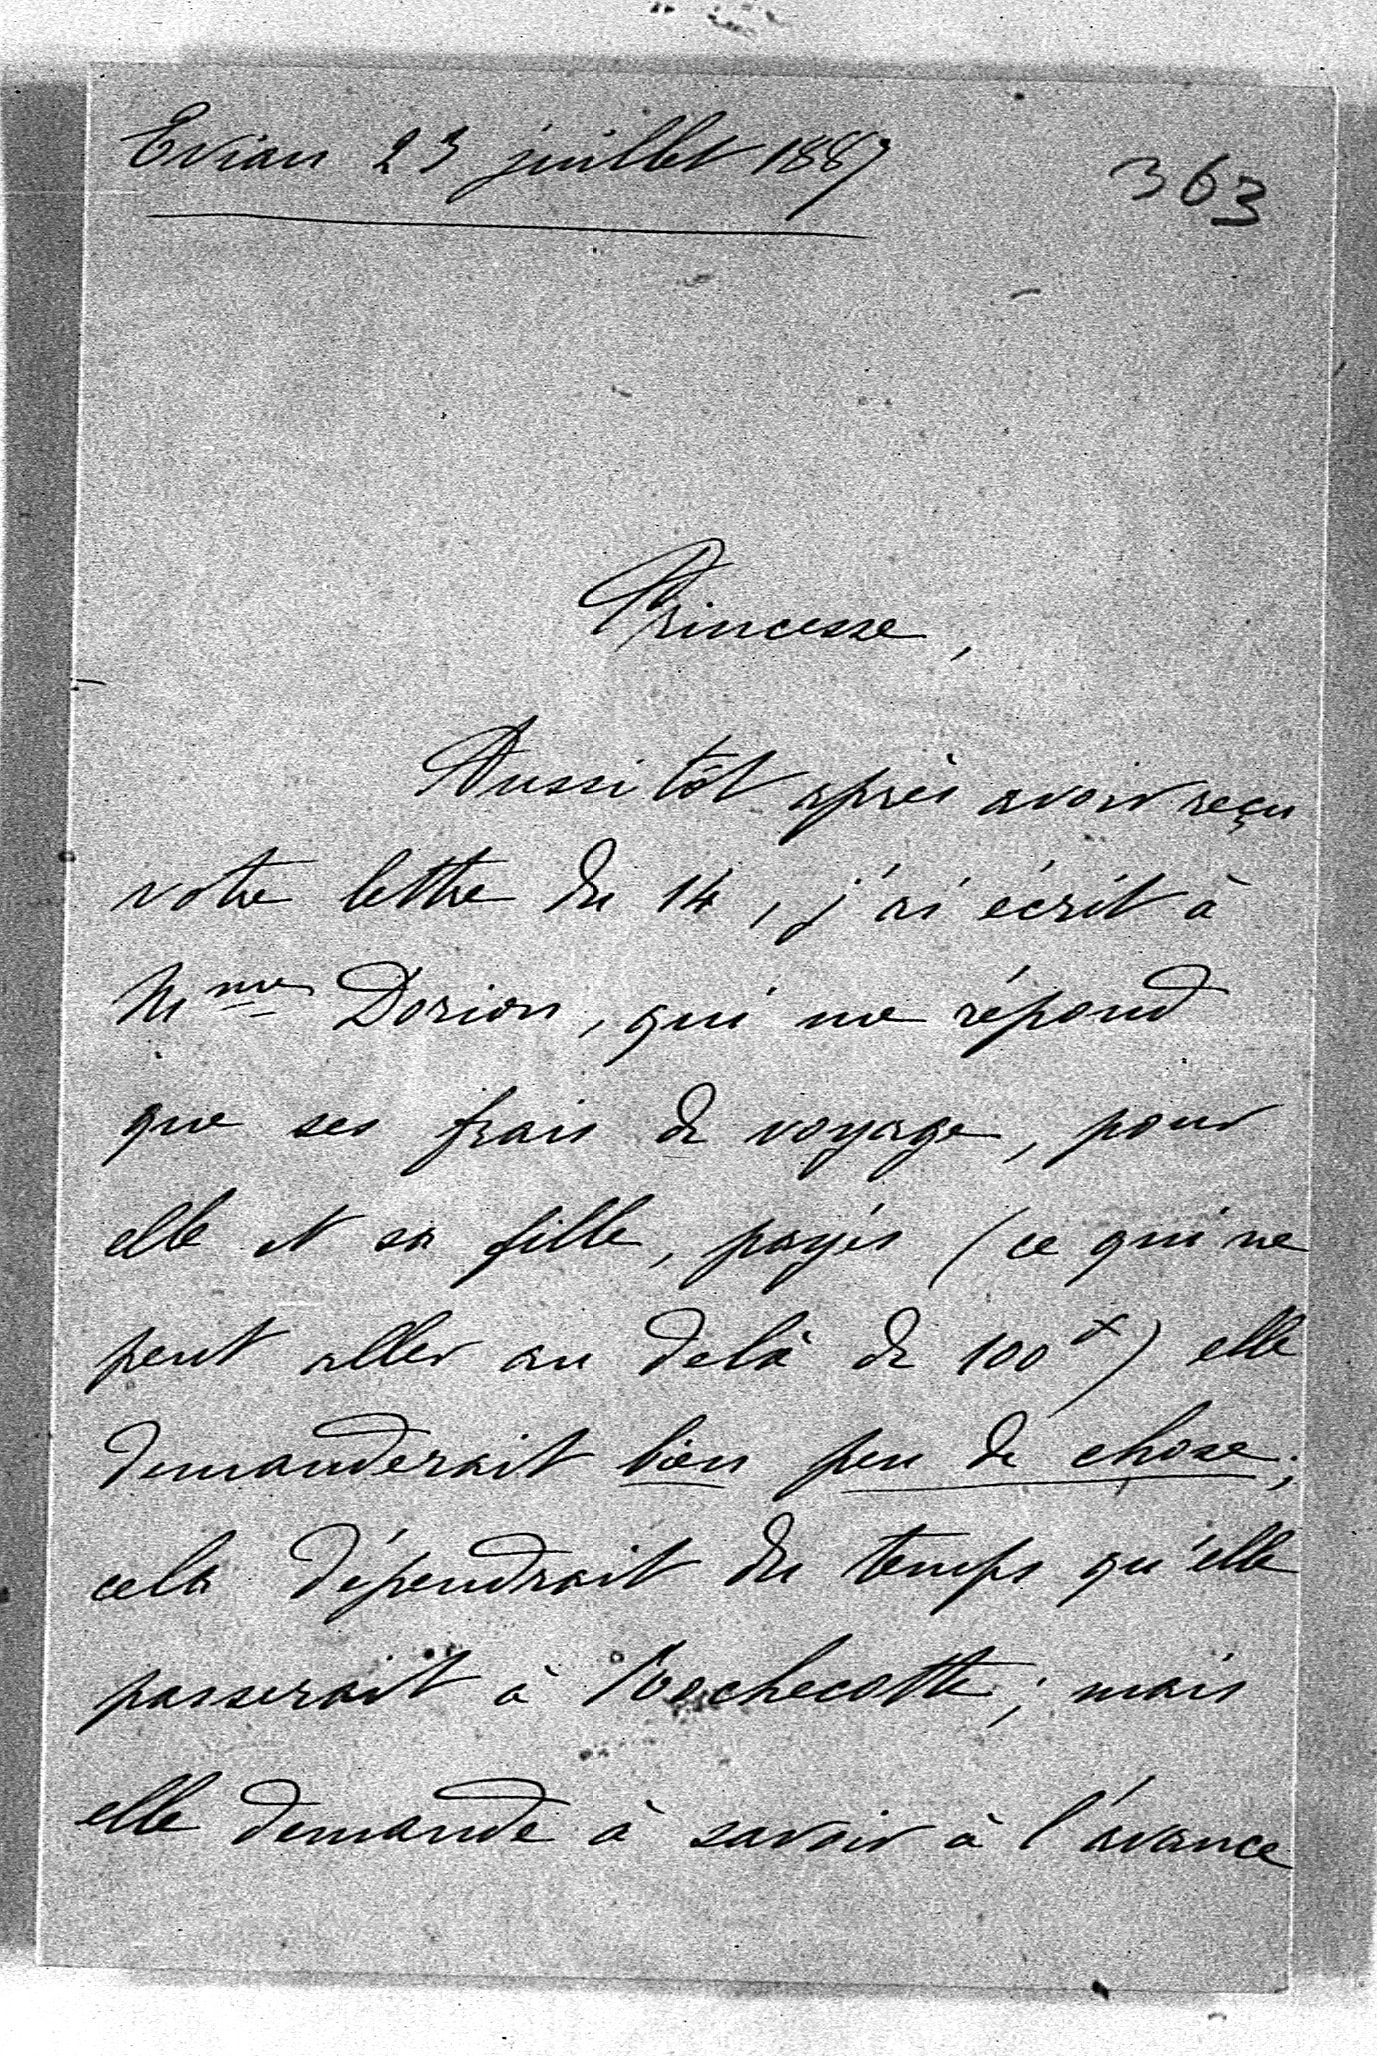 Evian 23 juillet 1887
363
Princesse,
Aussitôt après avoir reçu
votre lettre du 14, j'ai écrit à
Mme Dorion, qui me répond
que ses frais de voyage, pour
elle et sa fille, payés (ce qui ne
peut aller au delà de 100f) elle
demanderait bien peu de chose;
cela dépendrait du temps qu'elle
passerait à Rochecotte; mais
elle demande à savoir à l'avance